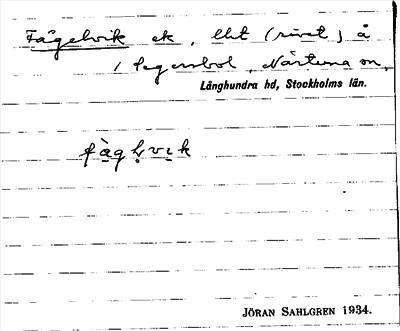 Fågelvik ek, lht (rivet) å
/ Segersbol, Närtuna sn,
Långhundra hd, Stockholms län.
fàgḷvɩk
JÖRAN SAHLGREN 1934.